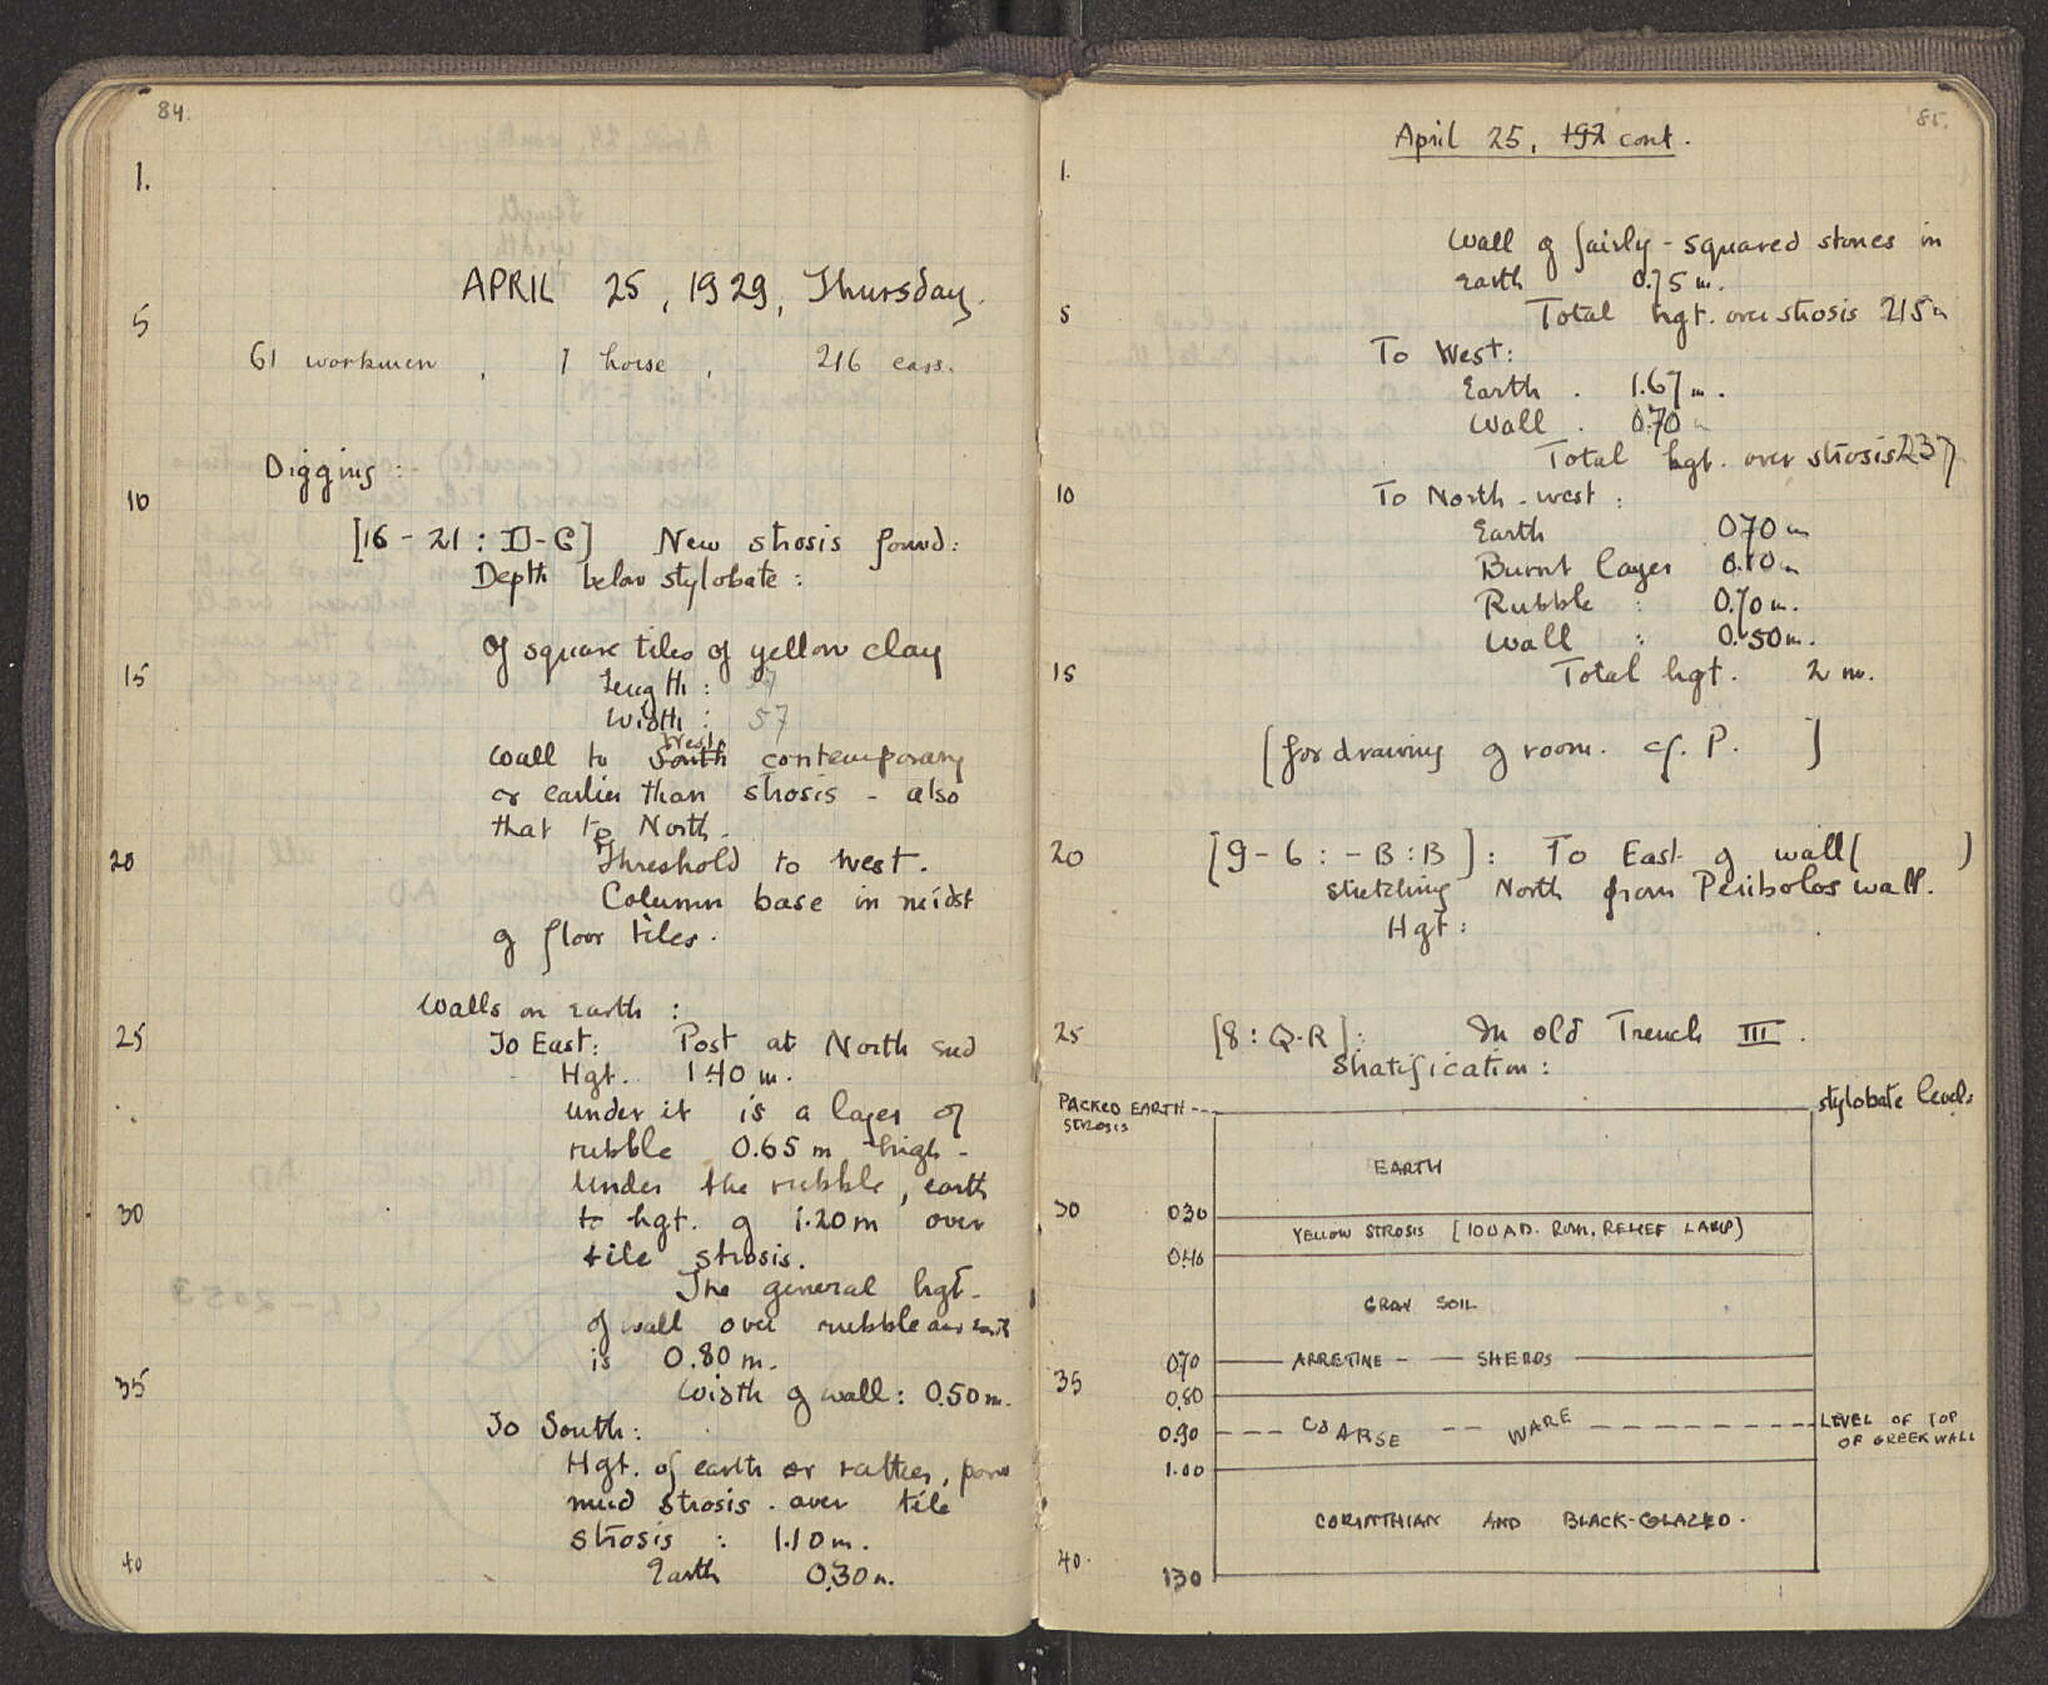 84.
1.
APRIL 25, 1929, Thursday.
5
61 workmen, 1 horse, 216 cars.
Digging:
10
[16 - 21 : D-G] New strosis found:
Depth below stylobate:
Of square tiles of yellow clay
15
Length: 57
Width: 57
West
Wall to South contemporary
or earlier than strosis - also
that to North.
20
Threshold to West.
Column base in midst
of floor tiles.
Walls on Earth:
25
To East: Post at North end
Hgt. 1.40 m.
under it is a layer of
rubble 0.65 m high -
Under the rubble, earth
30
to hgt. of 1.20 m over
tile strosis.
The general hgt.
of wall over rubble and earth
is 0.80 m.
35
Width of wall: 0.50 m.
To South:
Hgt. of earth or rather,
mud strosis over tile
strosis : 1.10 m.
40
Earth 0.30 m.
85.
April 25, 192 cont.
1.
Wall of fairly-squared stones in
earth 0.75 m.
5
Total hgt. over strosis 215 m
To West:
Earth . 1.67 m.
Wall . 0.70 m
Total hgt. over strosis 237
10
To North-west:
Earth 0.70 m
Burnt layer 0.10 m
Rubble : 0.70 m.
Wall : 0.50 m.
15
Total hgt. 2 m.
[for drawing of room. cf. P. ]
20
[9-6 : -B:B]: To East of wall ( )
stretching North from Peribolos wall.
Hgt:
25
[8 : Q-R]: In old Trench III.
Stratification:
PACKED EARTH
STROSIS
stylobate level.
EARTH
30
0.30
YELLOW STROSIS [100 A.D. ROM. RELIEF LAMP]
0.40
GRAY SOIL
0.70
ARRETINE - SHERDS
35
0.80
0.90
COARSE WARE
LEVEL OF TOP
OF GREEK WALL
1.00
CORINTHIAN AND BLACK-GLAZED.
40.
1.30